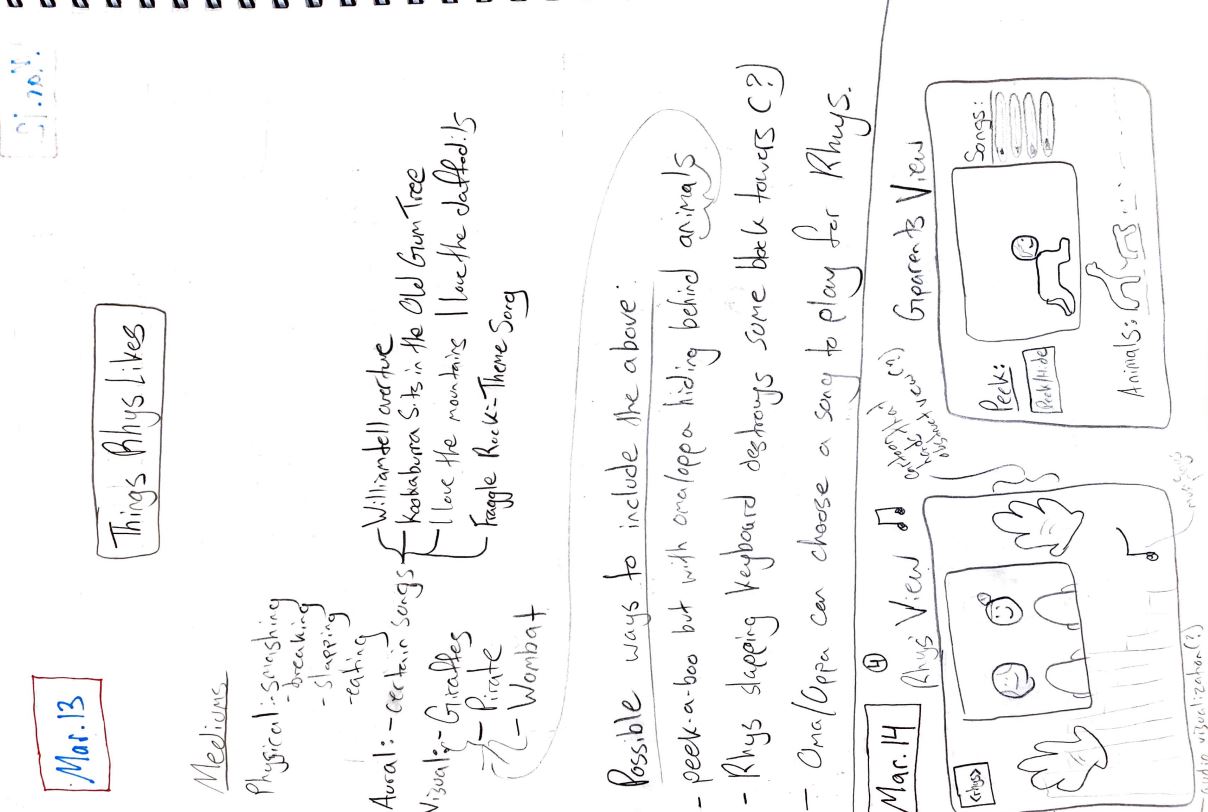 Mar.12
Mar.13
Things Rhys Likes
Mediums
Physical:-smashing
-breaking
-slapping
-eating
Aural:-certain songs
William tell overtue
Kookaburra Sits in the Old Gum Tree
I love the mountains I love the daffodils
Fraggle Rock-Theme Song
Visual:-Giraffes
-Pirate
-Wombat
Possible ways to include the above:
- peek-a-boo but with oma/oppa hiding behind animals
- Rhys slapping keyboard destroys some block towers (?)
- Oma/Oppa can choose a song to play for Rhys.
Mar.14
4
Rhys' View
cartoon
hands that
obstruct view(?)
Gparents View
<rhys>
Peek:
Peek/Hide
Songs:
Animals:
-audio visualization(?)